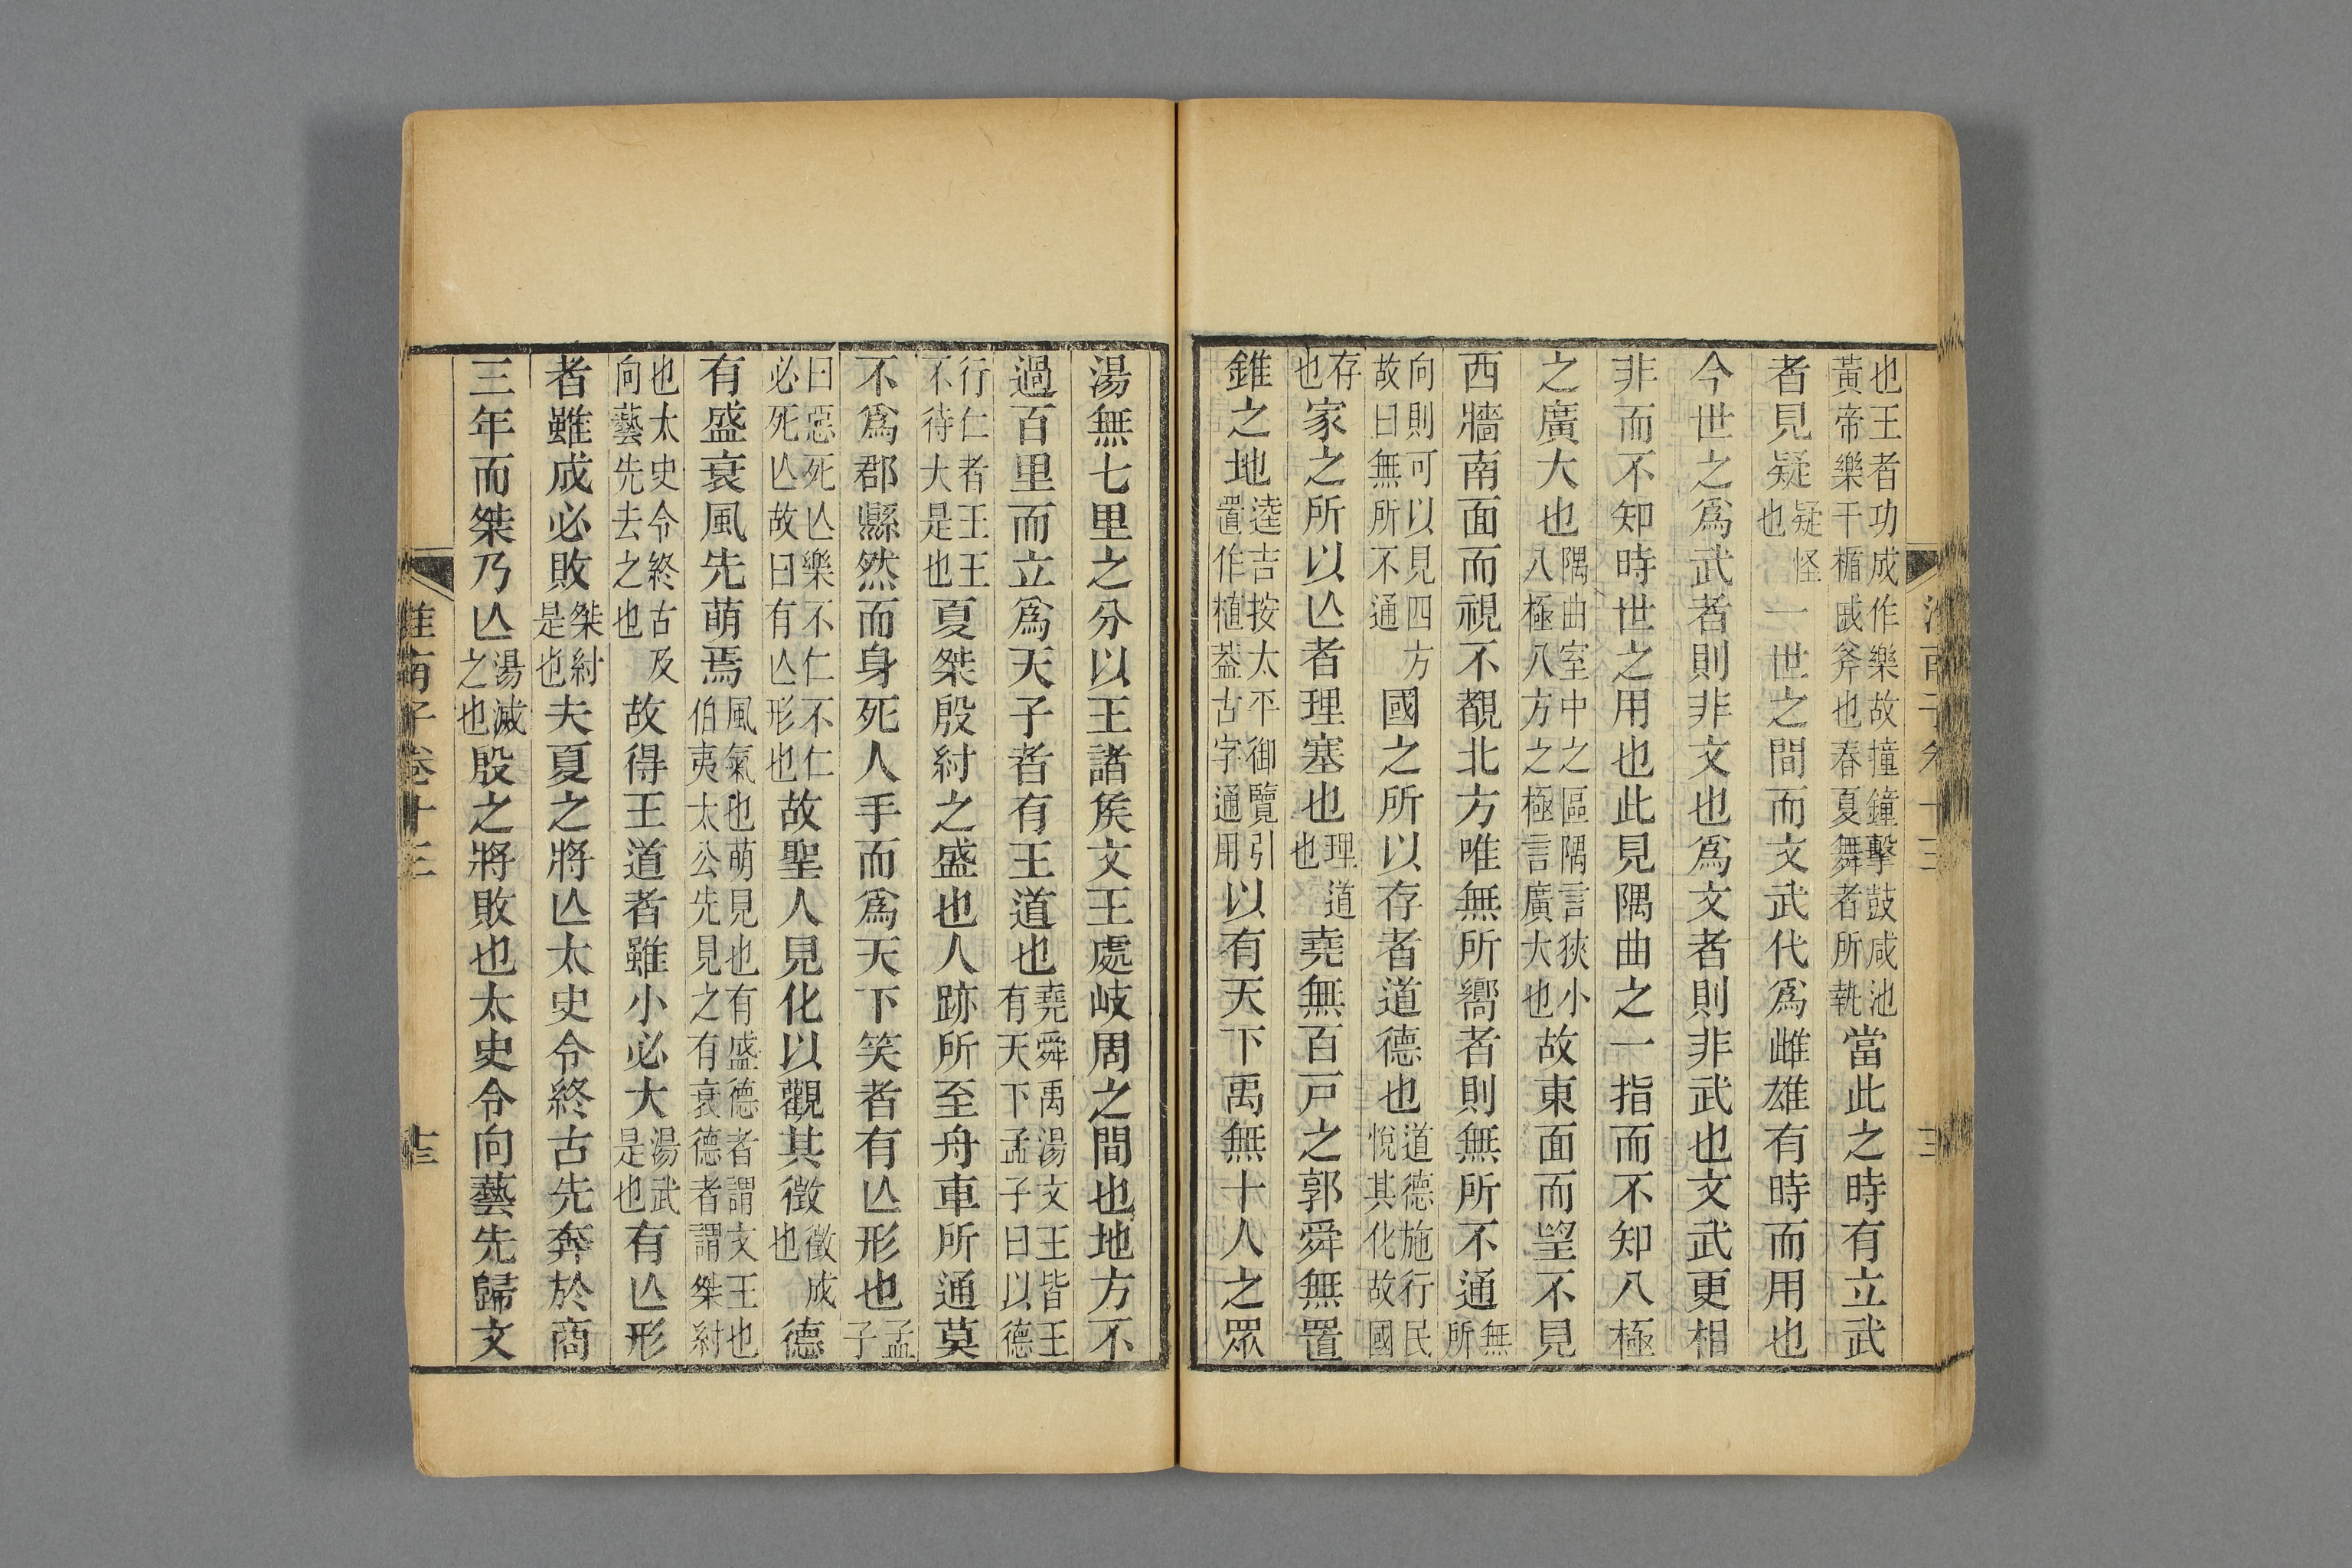 也王者功成作樂故撞鐘擊鼓咸池黃帝樂干楯戚斧也春夏舞者所執當此之時有立武
者見疑疑怪也一世之間而文武代爲雌雄有時而用也
今世之爲武者則非文也爲文者則非武也文武更相
非而不知時世之用也此見隅曲之一指而不知八極
之廣大也隅曲室中之區隅言狹小八極八方之極言廣大也故東面而望不見
西牆南面而視不覩北方唯無所嚮者則無所不通無所
向則可以見四方故曰無所不通國之所以存者道德也道德施行民悅其化故國
存也家之所以亾者理塞也理道也堯無百戸之郭舜無置
錐之地逵吉按太平御覽引置作植葢古字通用以有天下禹無十人之眾
湯無七里之分以王諸矦文王處岐周之間也地方不
過百里而立爲天子者有王道也堯舜禹湯文王皆王有天下孟子曰以德
行仁者王王不待大是也夏桀殷紂之盛也人跡所至舟車所通莫
不爲郡縣然而身死人手而爲天下笑者有亾形也孟子
曰惡死亾樂不仁不仁必死亾故曰有亾形也故聖人見化以觀其徵徵成也德
有盛衰風先萌焉風氣也萌見也有盛德者謂文王也伯夷太公先見之有衰德者謂桀紂
也太史令終古及向藝先去之也故得王道者雖小必大湯武是也有亾形
者雖成必敗桀紂是也夫夏之將亾太史令終古先奔於商
三年而桀乃亾湯滅之也殷之將敗也太史令向藝先歸文
淮南子卷十三
十三